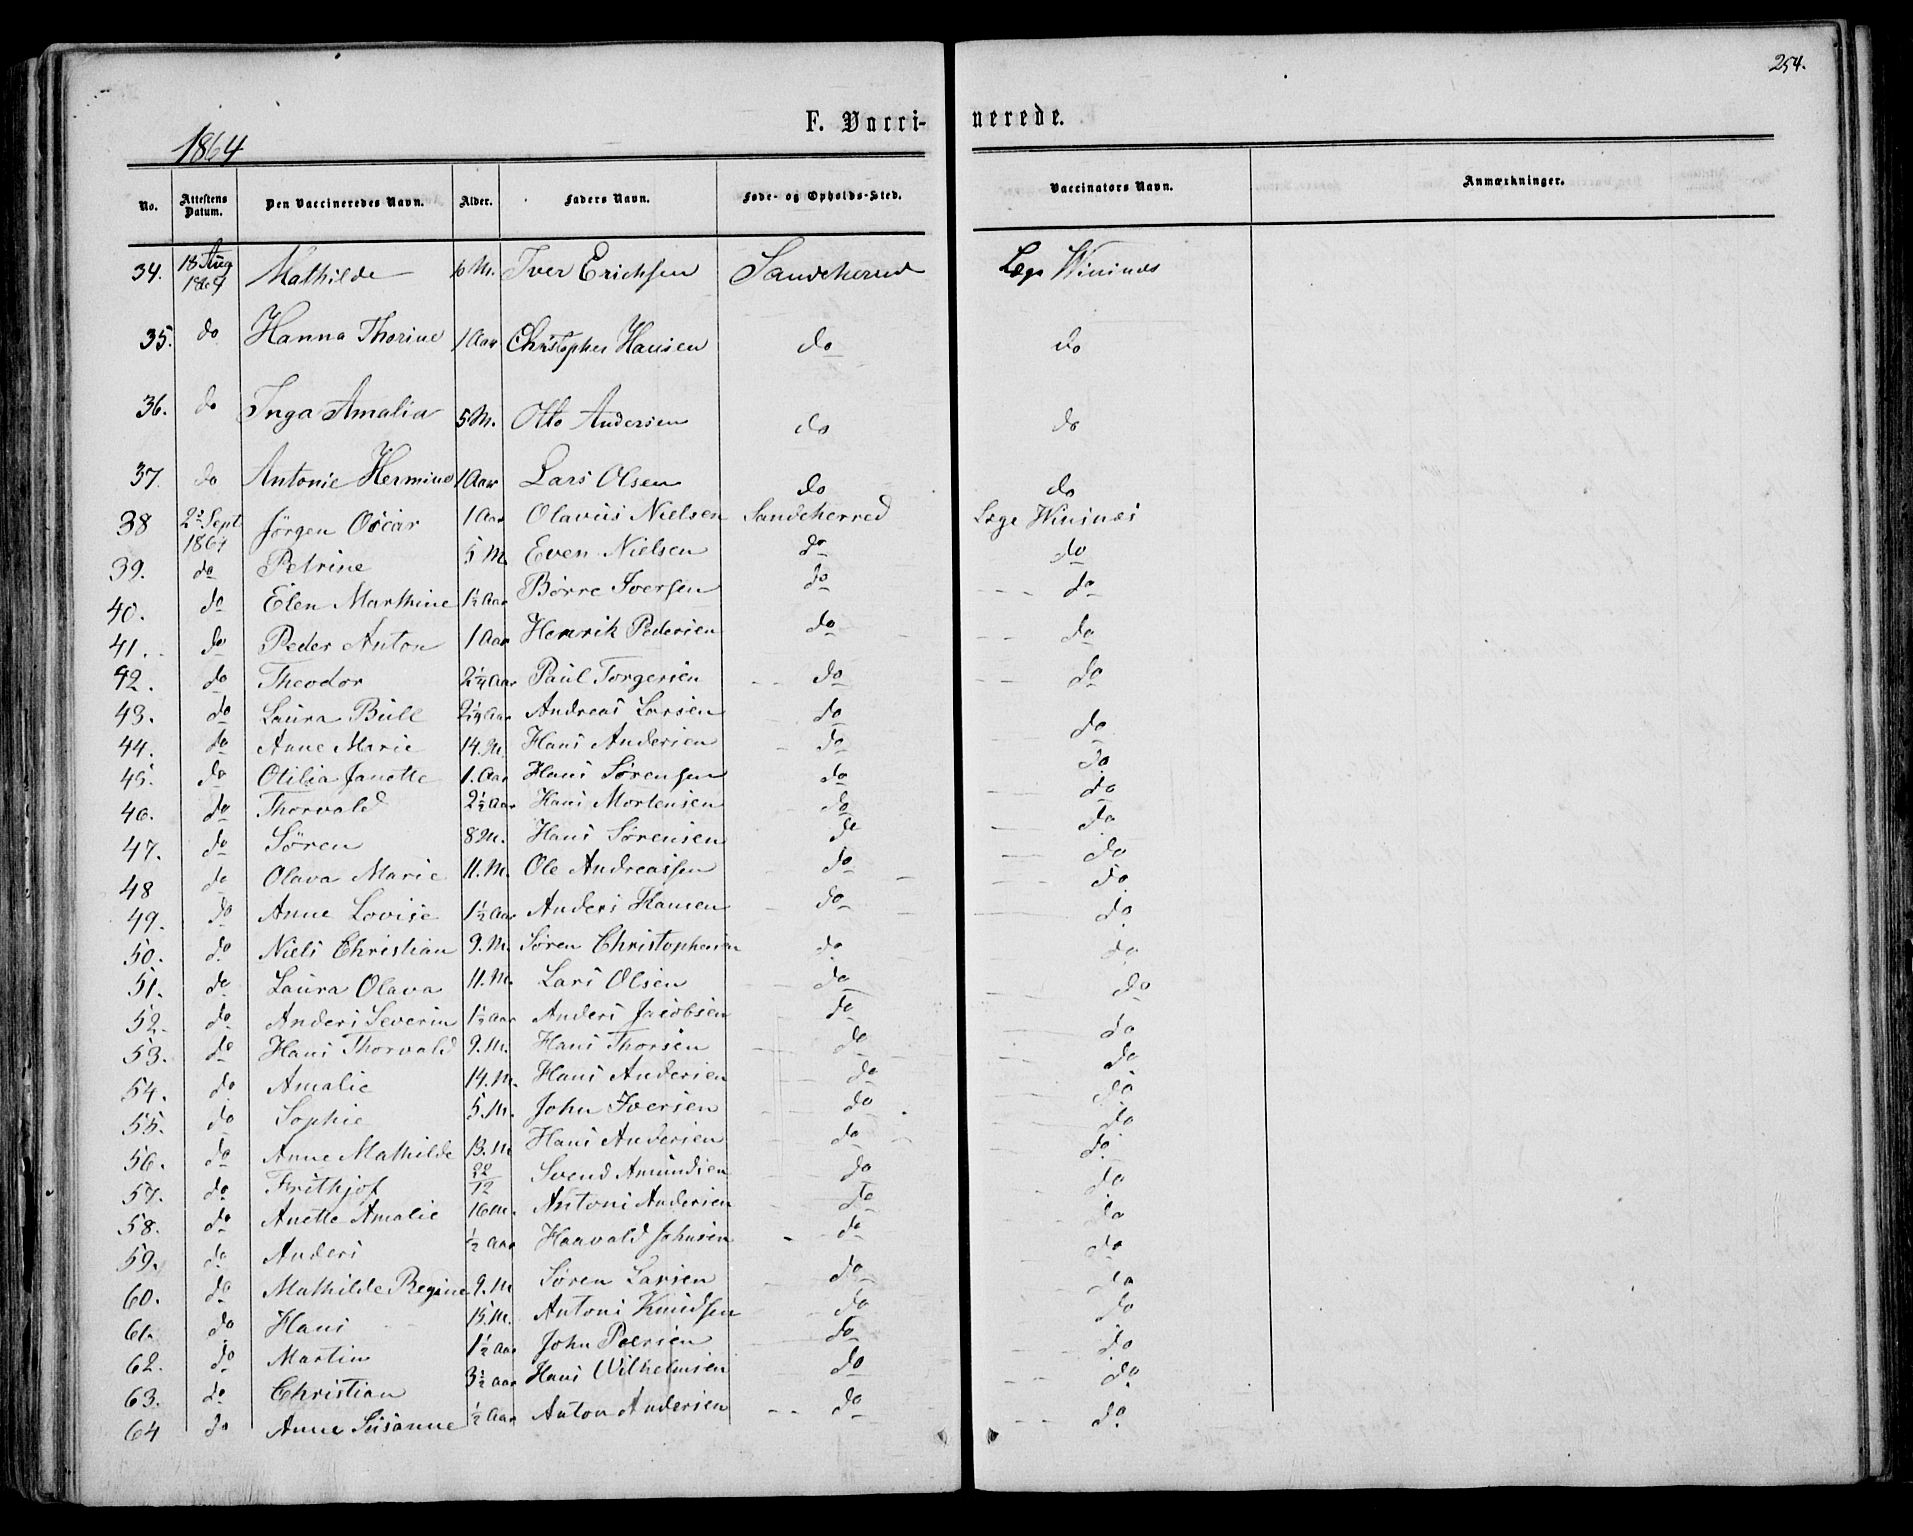 254.
F. Vacci- nerede.
1864
No. Attestens Datum. Den Vaccineredes Navn. Alder. Faders Navn. Føde- og Opholds-Sted. Vaccinators Navn. Anmærkninger.
34. 18 Aug 1864 Mathilde 6 M. Iver Erichsen Sandeherred Læge
35. do Hanna Thorine 1 Aar Christopher Hansen do do
36. do Inga Amalia 5 M. Otto Andersen do do
37. do Antonie Hermine 1 Aar Lars Olsen do do
38 Sept 1864 Jørgen Oscar 1 Aar Olavus Nielsen Sandeherred Læge
39. do Petrine 5 M Even Nielsen do do
40. do Elen Marthine 1½ Aar Børre Iversen do do
41. do Peder Anton 1 Aar Henrik Pedersen do do
42. do Theodor 2¼ Aar Paul Torgersen do do
43. do Laura Bull 2¼ Aar Andreas Larsen do do
44. do Anne Marie 14. M Hans Andersen do do
45. do Otilia Janette 1. Aar Hans Sørensen do do
46. do Thorvald 2½ Aar Hans Mortensen do do
47. do Søren 8 M. Hans Sørensen do do
48 do Olava Marie 11. M. Ole Andreassen do do
49. do Anne Lovise 1½ Aar Anders Hansen do do
50. do Niels Christian 9. M. Søren Christophersen do do
51. do Laura Olava 11. M. Lars Olsen do do
52. do Anders Severin 1½ Aar Anders Jacobsen do do
53. do Hans Thorvald 9. M. Hans Thorsen do do
54. do Amalie 14. M. Hans Andersen do do
55. do Sophie 5. M. John Iversen do do
56. do Anne Mathilde 13. M Hans Andersen do do
57. do Frithjof 22/12 Svend Amundsen do do
58. do Anette Amalie 16 M. Antoni Andersen do do
59. do Anders ½ Aar Haavald Johnsen do do
60. do Mathilde Regine 9. M Søren Larsen do do
61. do Hans 15. M. Antoni Knudsen do do
62. do Martin 1½ Aar John Persen do do
63. do Christian 3½ Aar Hans Wilhelmsen do do
64 do Anne Susanne ½ Aar Anton Andersen do do